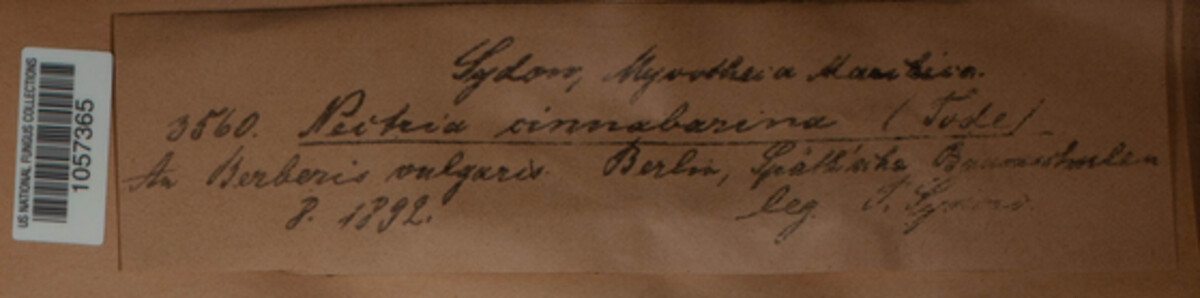 US NATIONAL FUNGUS COLLECTIONS
1057365
Sydow, Mycotheca Marchica.
3560. Nectria cinnabarina (Tode)
An Berberis vulgaris. Berlin, Späth'sche Baumschulen
8. 1892. leg. P. Sydow.